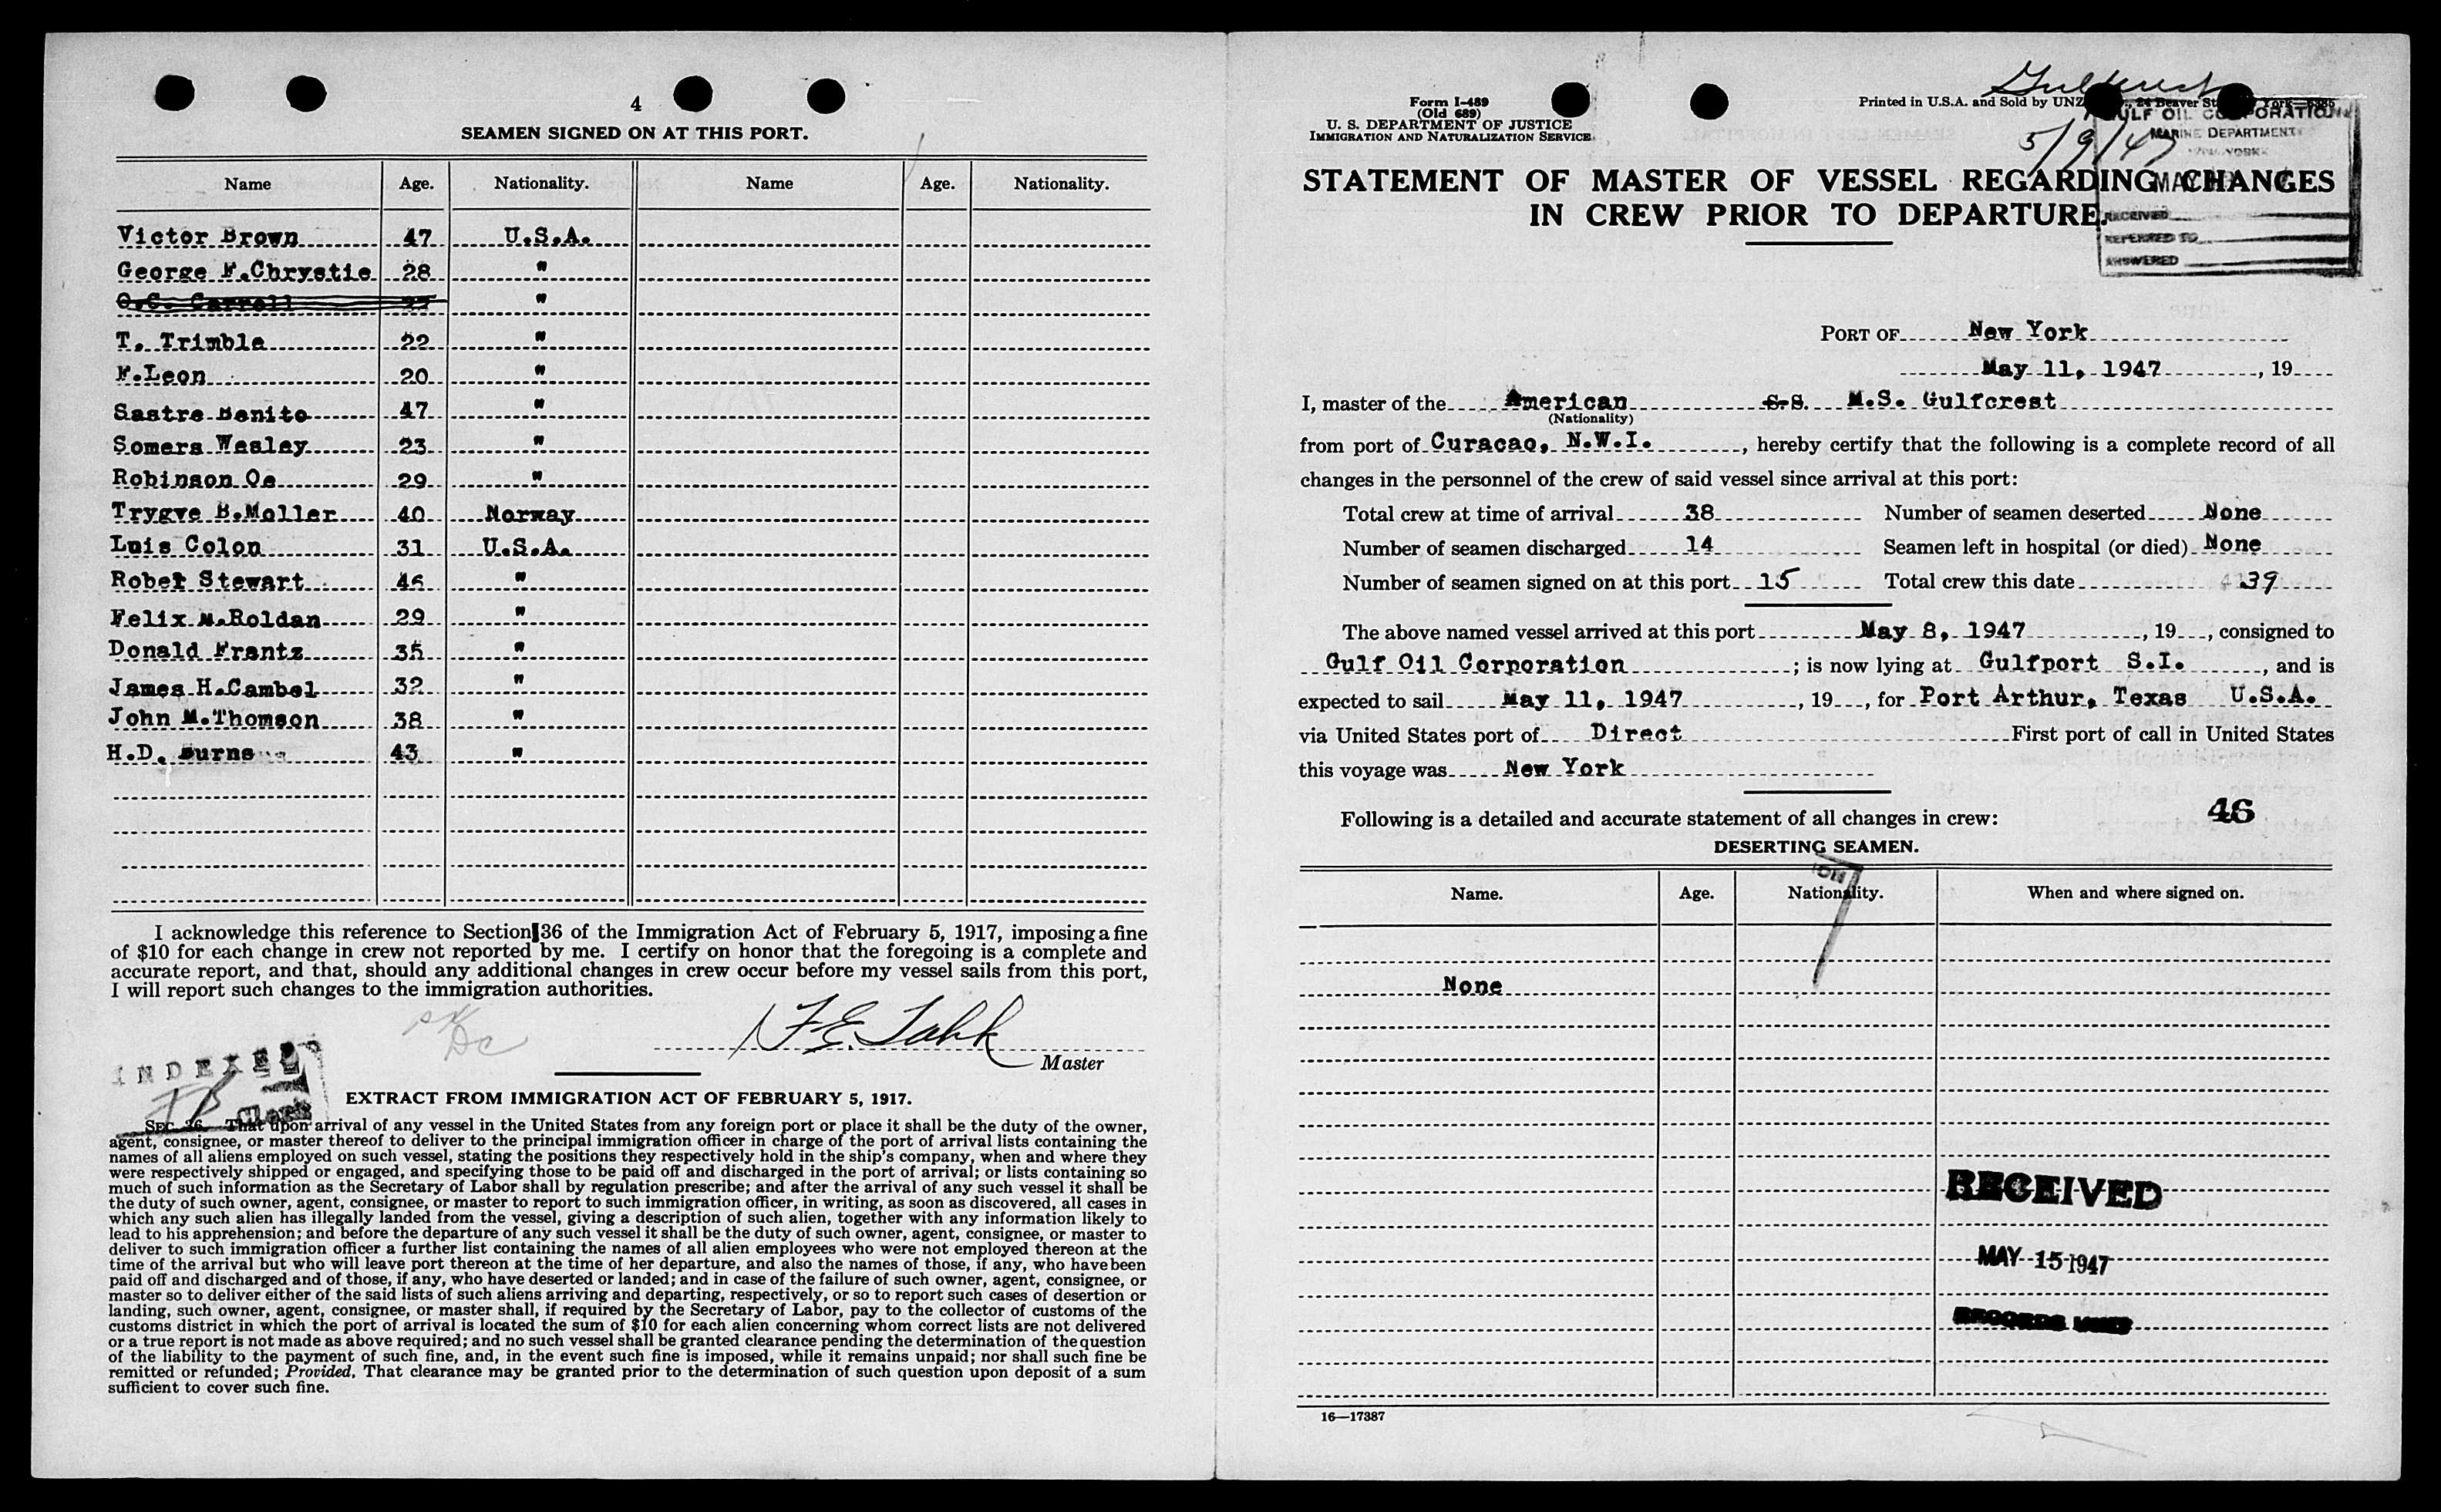 4
SEAMEN SIGNED ON AT THIS PORT.
Name Age. Nationality. Name Age. Nationality.
Victor Brown 47 U.S.A.
George F.Chrystie 28 "
O.C. Carroll "
T. Trimble 22 "
F.Leon 20 "
Sastre Benito 47 "
Somers Wesley 23 "
Robinson Oe 29 "
Trygve B.Moller 40 Norway
Luis Colon 31 U.S.A.
Robet Stewart 46 "
Felix M.Roldan 29 "
Donald Frantz 35 "
James H.Cambel 32 "
John M.Thomson 38 "
H.D. Burns 43 "
I acknowledge this reference to Section 36 of the Immigration Act of February 5, 1917, imposing a fine
of $10 for each change in crew not reported by me. I certify on honor that the foregoing is a complete and
accurate report, and that, should any additional changes in crew occur before my vessel sails from this port,
I will report such changes to the immigration authorities.
Master
INDEXED
EXTRACT FROM IMMIGRATION ACT OF FEBRUARY 5, 1917.
SEC. 36. That upon arrival of any vessel in the United States from any foreign port or place it shall be the duty of the owner,
agent, consignee, or master thereof to deliver to the principal immigration officer in charge of the port of arrival lists containing the
names of all aliens employed on such vessel, stating the positions they respectively hold in the ship's company, when and where they
were respectively shipped or engaged, and specifying those to be paid off and discharged in the port of arrival; or lists containing so
much of such information as the Secretary of Labor shall by regulation prescribe; and after the arrival of any such vessel it shall be
the duty of such owner, agent, consignee, or master to report to such immigration officer, in writing, as soon as discovered, all cases in
which any such alien has illegally landed from the vessel, giving a description of such alien, together with any information likely to
lead to his apprehension; and before the departure of any such vessel it shall be the duty of such owner, agent, consignee, or master to
deliver to such immigration officer a further list containing the names of all alien employees who were not employed thereon at the
time of the arrival but who will leave port thereon at the time of her departure, and also the names of those, if any, who have been
paid off and discharged and of those, if any, who have deserted or landed; and in case of the failure of such owner, agent, consignee, or
master so to deliver either of the said lists of such aliens arriving and departing, respectively, or so to report such cases of desertion or
landing, such owner, agent, consignee, or master shall, if required by the Secretary of Labor, pay to the collector of customs of the
customs district in which the port of arrival is located the sum of $10 for each alien concerning whom correct lists are not delivered
or a true report is not made as above required; and no such vessel shall be granted clearance pending the determination of the question
of the liability to the payment of such fine, and, in the event such fine is imposed, while it remains unpaid; nor shall such fine be
remitted or refunded; Provided, That clearance may be granted prior to the determination of such question upon deposit of a sum
sufficient to cover such fine.
Gulfcrest
Form I-489
(Old 689)
U. S. DEPARTMENT OF JUSTICE
IMMIGRATION AND NATURALIZATION SERVICE
Printed in U.S.A. and Sold by UNZ 24 Beaver St
GULF OIL CORPORATION
MARINE DEPARTMENT
NEW YORK
5/9/47
MAY
RECEIVED
REFERRED TO
ANSWERED
STATEMENT OF MASTER OF VESSEL REGARDING CHANGES
IN CREW PRIOR TO DEPARTURE.
PORT OF New York
May 11, 1947, 19
I, master of the American S.S. M.S. Gulfcrest
(Nationality)
from port of Curacao, N.W.I., hereby certify that the following is a complete record of all
changes in the personnel of the crew of said vessel since arrival at this port:
Total crew at time of arrival 38 Number of seamen deserted None
Number of seamen discharged 14 Seamen left in hospital (or died) None
Number of seamen signed on at this port 15 Total crew this date 39
The above named vessel arrived at this port May 8, 1947, 19, consigned to
Gulf Oil Corporation; is now lying at Gulfport S.I., and is
expected to sail May 11, 1947, 19, for Port Arthur, Texas U.S.A.
via United States port of Direct First port of call in United States
this voyage was New York
46
Following is a detailed and accurate statement of all changes in crew:
DESERTING SEAMEN.
Name. Age. Nationality. When and where signed on.
None
RECEIVED
MAY 15 1947
16—17387